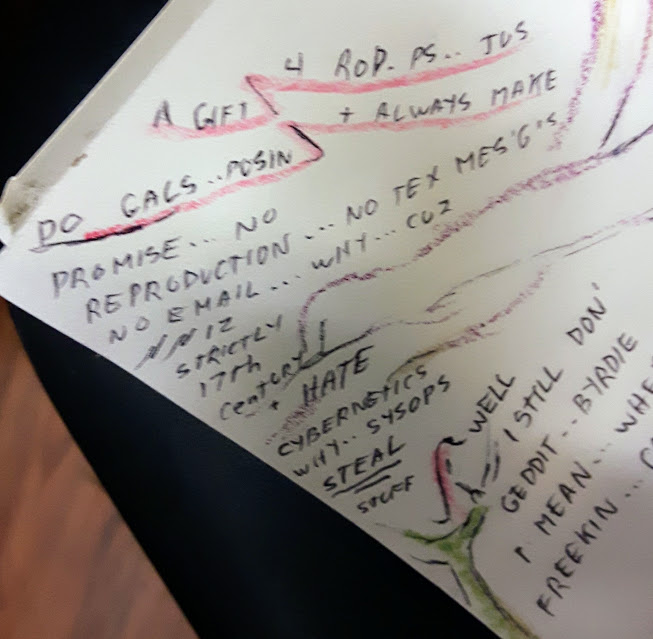 4 ROD. PS.. JUS
A GIFT
+ ALWAYS MAKE
DO GALS.. POSIN
PROMISE... NO
REPRODUCTION... NO TEX MES'G'S
NO EMAIL... WHY... CUZ
STRICTLY
17th
Century
+ HATE
CYBERNETICS
WHY.. SYSOPS
STEAL
STUFF
WELL
I STILL DON'
GEDDIT.. BYRDIE
I MEAN... WHE
FREEKIN...